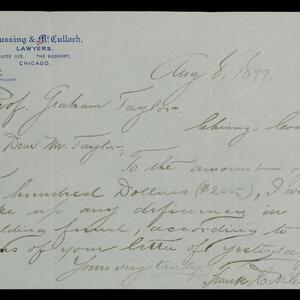 ussing & McCulloch,
LAWYERS.
SUITE 1113. THE ROOKERY,
CHICAGO.
Aug 8, 1899.
Prof. Graham Taylor
Dear Mr. Taylor,
To the amount
hundred Dollars ($200),
up any deficiency in
fund, according to
of your letter of yesterday
Yours very truly,
Frank